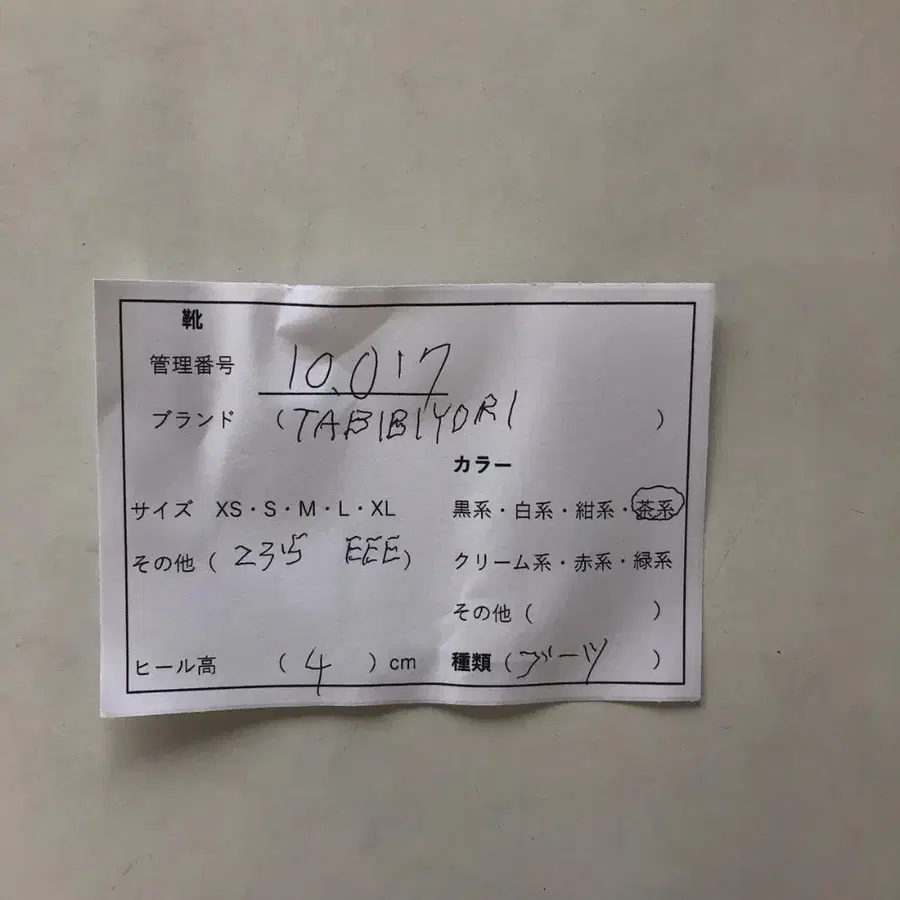 靴
管理番号 10.017
ブランド (TABIBIYORI )
カラー
サイズ XS・S・M・L・XL 黒系・白系・紺系・茶系
その他 ( 235 EEE) クリーム系・赤系・緑系
その他 ( )
ヒール高 ( 4 ) cm 種類 (ブーツ )